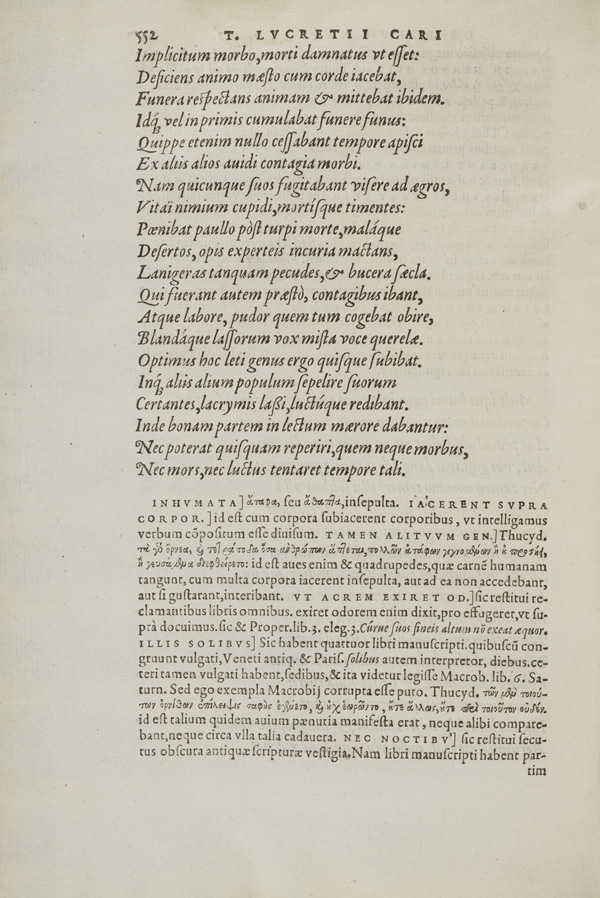 552 T. LVCRETII CARI
Implicitum morbo, morti damnatus vt esset:
Deficiens animo mæsto cum corde iacebat,
Funera respectans animam & mittebat ibidem.
Idq́; vel in primis cumulabat funere funus:
Quippe etenim nullo cessabant tempore apisci
Ex aliis alios auidi contagia morbi.
Nam quicunque suos fugitabant visere ad ægros,
Vitaï nimium cupidi, mortisque timentes:
Pœnibat paullo pòst turpi morte, maláque
Desertos, opis experteis incuria mactans,
Lanigeras tanquam pecudes, & bucera sæcla.
Qui fuerant autem præstò, contagibus ibant,
Atque labore, pudor quem tum cogebat obire,
Blandáque lassorum vox mista voce querelæ.
Optimus hoc leti genus ergo quisque subibat.
Inq́; aliis alium populum sepelire suorum
Certantes, lacrymis lassi, luctúque redibant.
Inde bonam partem in lectum mærore dabantur:
Nec poterat quisquam reperiri, quem neque morbus,
Nec mors, nec luctus tentaret tempore tali.
INHVMATA] ἄταφα, seu ἄθαπτα, insepulta. IACERENT SVPRA
CORPOR.] id est cum corpora subiacerent corporibus, vt intelligamus
verbum cōpositum esse diuisum. TAMEN ALITVVM GEN.] Thucyd.
τὰ γὸ ὄρνεα, καὶ τετράποδα ὅσα ἀνθρώπων ἅπτεται, πολλῶν ἀτάφων γιγνομένων ἢ οὐ προσῄει,
ἢ γευσάμενα διεφθείρετο: id est aues enim & quadrupedes, quæ carnē humanam
tangunt, cum multa corpora iacerent insepulta, aut ad ea non accedebant,
aut si gustarant, interibant. VT ACREM EXIRET OD.] sic restitui re-
clamantibus libris omnibus. exiret odorem enim dixit, pro effugeret, vt su-
prà docuimus. sic & Proper. lib. 3. eleg. 3. Cúrue suos fineis altum nō exeat æquor.
ILLIS SOLIBVS] Sic habent quattuor libri manuscripti. quibuscū con-
gruunt vulgati, Veneti antiq. & Paris. solibus autem interpretor, diebus. ce-
teri tamen vulgati habent, sedibus, & ita videtur legisse Macrob. lib. 6. Sa-
turn. Sed ego exempla Macrobij corrupta esse puto. Thucyd. τῶν μὲν τοιού-
των ὀρνίθων ἐπίλειψις σαφὴς ἐγένετο, καὶ οὐχ ἑωρῶντο, οὔτε ἄλλως, οὔτε περὶ τοιοῦτον οὐδέν.
id est talium quidem auium pænuria manifesta erat, neque alibi compare-
bant, neque circa vlla talia cadauera. NEC NOCTIBV'] sic restitui secu-
tus obscura antiquæ scripturæ vestigia. Nam libri manuscripti habent par-
tim